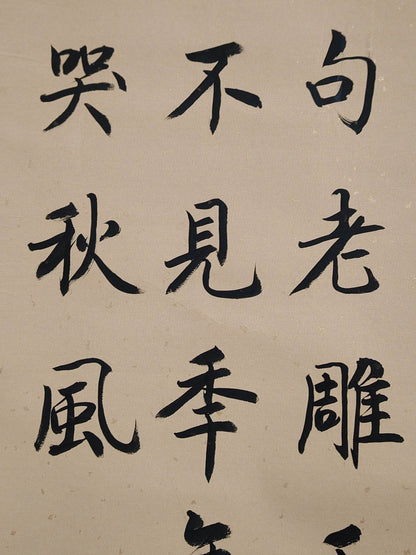 句老雕
不見秊
哭秋風